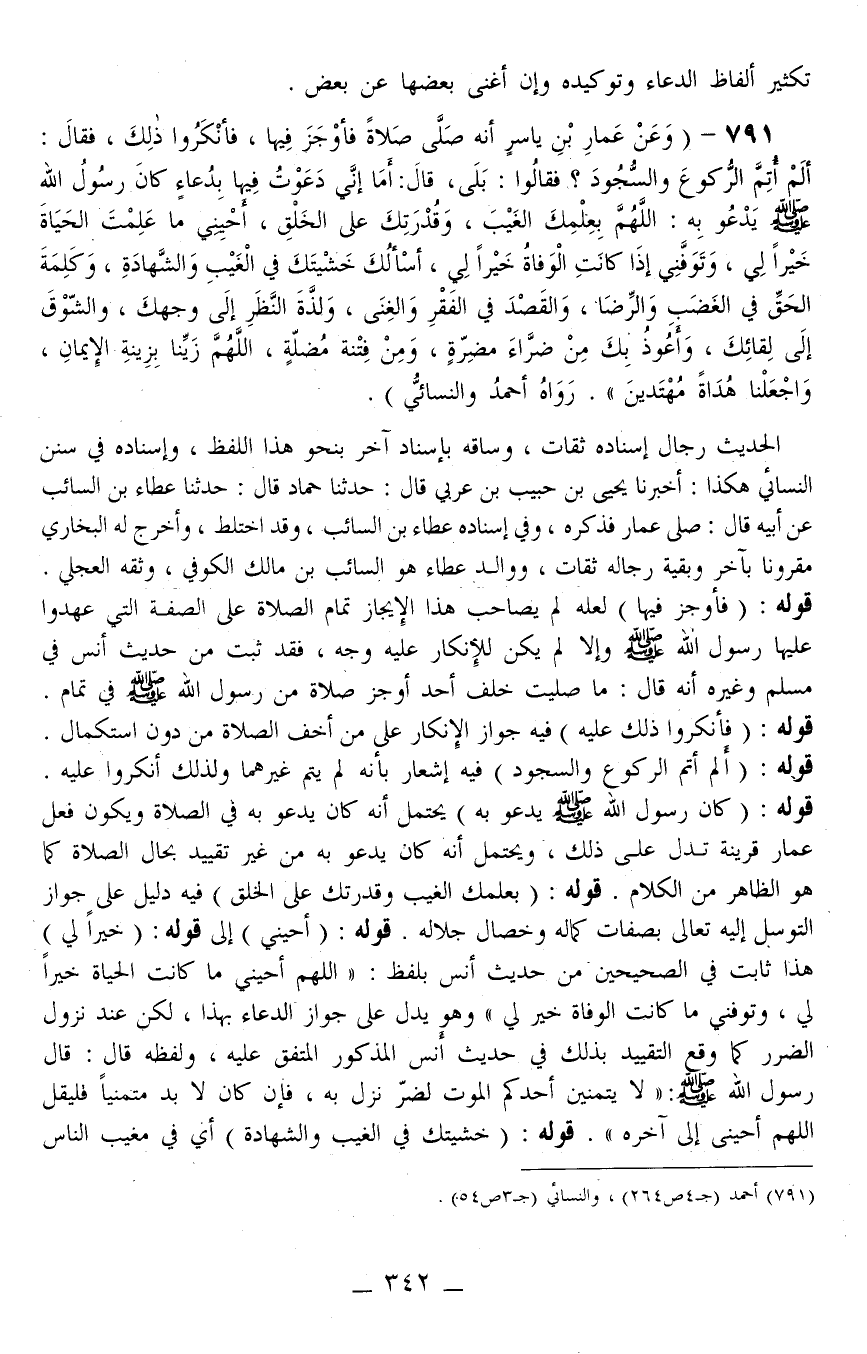 تكثير ألفاظ الدعاء وتوكيده وإن أغنى بعضها عن بعض .
٧٩١ – ( وَعَنْ عَمارِ بْنِ ياسرٍ أنه صَلَّى صَلاةً فأوْجَزَ فِيها ، فأنْكَرُوا ذٰلِكَ ، فقالَ :
ألَمْ أُتِمَّ الرُّكوعَ والسُّجُودَ ؟ فقالُوا : بَلَى، قالَ: أَمَا إنَّي دَعَوْتُ فِيها بِدُعاءٍ كانَ رسُولُ الله
ﷺ يَدْعُو به : اللَّهُمَّ بِعِلْمِكَ الغَيْبَ ، وَقُدْرَتِكَ على الخَلْقِ ، أَحْيِنِي ما عَلِمْتَ الحَيَاةَ
خَيْراً لِي ، وَتَوَفَّنِي إذَا كانَتِ الْوَفاةُ خَيْراً لِي ، أسْألُكَ خَشيَتَكَ في الْغَيْبِ وَالشَّهادَةِ ، وَكَلِمَةَ
الحَقِّ في الغَضَبِ وَالرِّضَا ، وَالقَصْدَ في الفَقْرِ وَالغِنَى ، وَلذَّةَ النَّظَرِ إلَى وجهكَ ، والشّوْقَ
إلَى لِقائِكَ ، وَأَعُوذُ بِكَ مِنْ ضرَّاءَ مضِرّةٍ ، وَمِنْ فِتْنة مُضلّةٍ ، اللَّهُمَّ زَيِّنا بِزِينةِ الإِيمانِ ،
وَاجْعَلْنا هُدَاةً مُهْتَدينَ » . رَوَاهُ أحمدُ والنسائيُّ ) .
الحديث رجال إسناده ثقات ، وساقه بإسناد آخر بنحو هذا اللفظ ، وإسناده في سنن
النسائي هكذا : أخبرنا يحيى بن حبيب بن عربي قال : حدثنا حماد قال : حدثنا عطاء بن السائب
عن أبيه قال : صلى عمار فذكره ، وفي إسناده عطاء بن السائب ، وقد اختلط ، وأخرج له البخاري
مقرونا بآخر وبقية رجاله ثقات ، ووالد عطاء هو السائب بن مالك الكوفي ، وثقه العجلي .
قوله : ( فأوجز فيها ) لعله لم يصاحب هذا الإِيجاز تمام الصلاة على الصفة التي عهدوا
عليها رسول الله ﷺ وإلا لم يكن للإِنكار عليه وجه ، فقد ثبت من حديث أنس في
مسلم وغيره أنه قال : ما صليت خلف أحد أوجز صلاة من رسول الله ﷺ في تمام .
قوله : ( فأنكروا ذلك عليه ) فيه جواز الإِنكار على من أخف الصلاة من دون استكمال .
قوله : ( ألم أتم الركوع والسجود ) فيه إشعار بأنه لم يتم غيرهما ولذلك أنكروا عليه .
قوله : ( كان رسول الله ﷺ يدعو به ) يحتمل أنه كان يدعو به في الصلاة ويكون فعل
عمار قرينة تدل على ذلك ، ويحتمل أنه كان يدعو به من غير تقييد بحال الصلاة كما
هو الظاهر من الكلام . قوله : ( بعلمك الغيب وقدرتك على الخلق ) فيه دليل على جواز
التوسل إليه تعالى بصفات كماله وخصال جلاله . قوله : ( أحيني ) إلى قوله : ( خيراً لي )
هذا ثابت في الصحيحين من حديث أنس بلفظ : « اللهم أحيني ما كانت الحياة خيراً
لي ، وتوفني ما كانت الوفاة خير لي » وهو يدل على جواز الدعاء بهذا ، لكن عند نزول
الضرر كما وقع التقييد بذلك في حديث أنس المذكور المتفق عليه ، ولفظه قال : قال
رسول الله ﷺ: « لا يتمنين أحدكم الموت لضرّ نزل به ، فإن كان لا بد متمنياً فليقل
اللهم أحينى إلى آخره » . قوله : ( خشيتك في الغيب والشهادة ) أي في مغيب الناس
(٧٩١) أحمد (جـ٤ص٢٦٤) ، والنسائي (جـ٣ص٥٤) .
ــ ٣٤٢ ــ